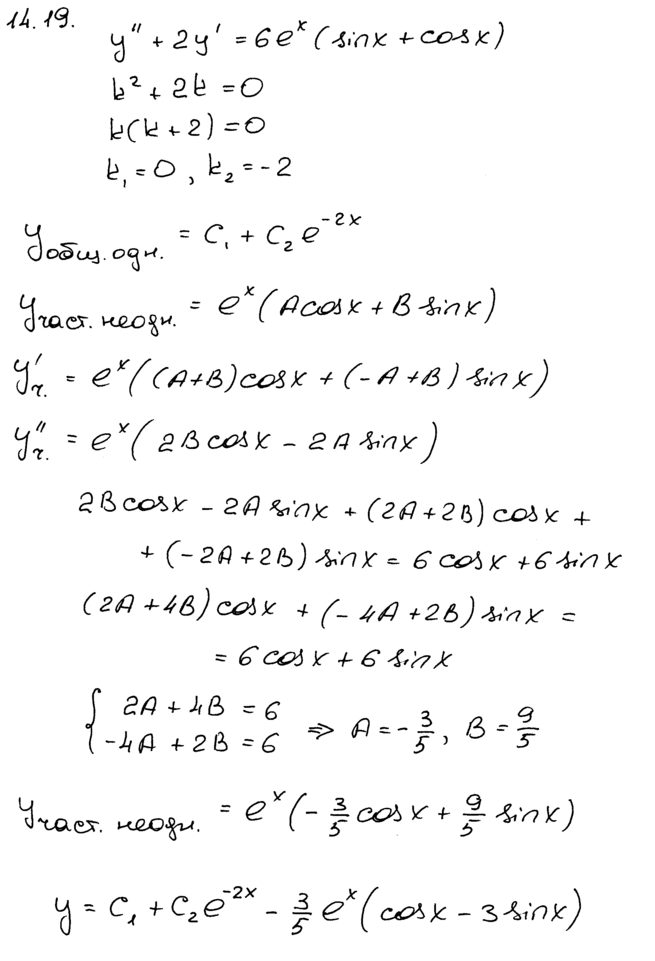 14.19.
y'' + 2y' = 6e^x (sinx + cosx)
k² + 2k = 0
k(k + 2) = 0
k₁ = 0, k₂ = -2
y общ. одн. = C₁ + C₂e^{-2x}
y част. неодн. = e^x (A cosx + B sinx)
y'ч. = e^x ((A+B) cosx + (-A+B) sinx)
y''ч. = e^x (2B cosx - 2A sinx)
2B cosx - 2A sinx + (2A+2B) cosx +
+ (-2A+2B) sinx = 6 cosx + 6 sinx
(2A+4B) cosx + (-4A+2B) sinx =
= 6 cosx + 6 sinx
{ 2A + 4B = 6
-4A + 2B = 6 ⇒ A = -3/5, B = 9/5
y част. неодн. = e^x (-3/5 cosx + 9/5 sinx)
y = C₁ + C₂e^{-2x} - 3/5 e^x (cosx - 3 sinx)